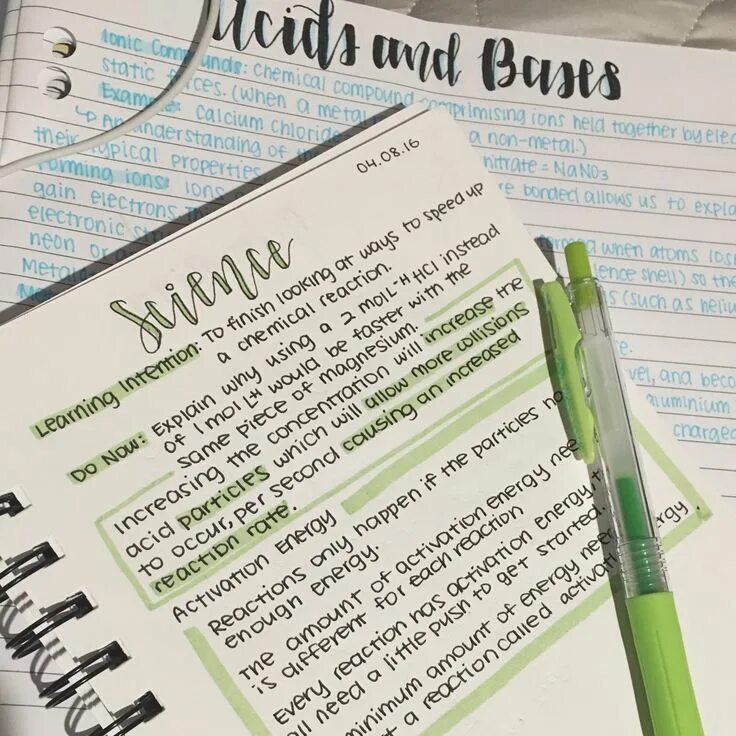 Acids and Bases
Ionic Compounds: chemical compound comprimising ions held together by elec
static forces. (when a metal a non-metal.)
Example: Calcium Chloride nitrate = NaNO3
↳ An understanding of re bonded allows us to expla
their typical properties.
Forming ions: Ions formed when atoms lose
gain electrons. valence shell) so the
electronic ns (such as heliu
neon or
Metal vel, and beco
aluminium
charged
04.08.16
Science
Learning Intention: To finish looking at ways to speed up
a chemical reaction.
Do Now: Explain why using a 2 molL-1 HCl instead
of 1 molL-1 would be faster with the
same piece of magnesium.
Increasing the concentration will increase the
acid particles which will allow more collisions
to occur, per second causing an increased
reaction rate.
Activation Energy
Reactions only happen if the particles
enough energy.
The amount of activation energy
is different for each reaction
Every reaction has activation energy
all need a little push to get started.
minimum amount of energy
a reaction called